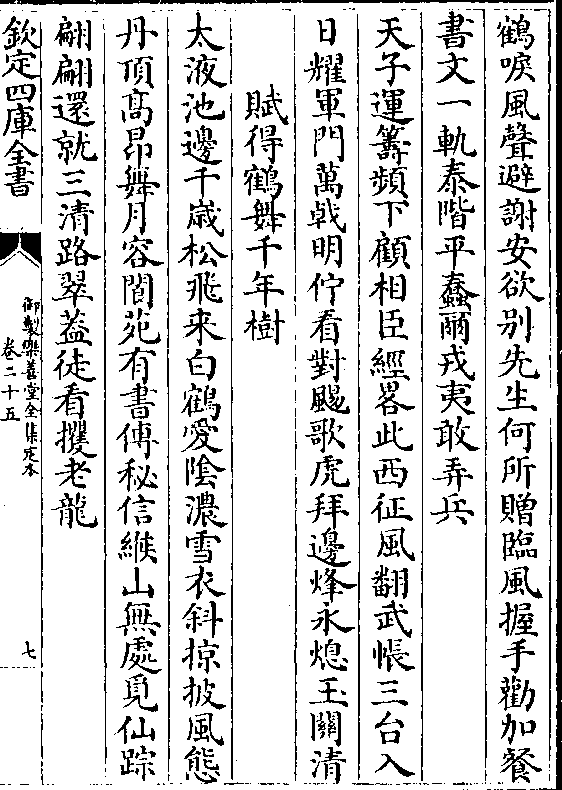 鶴唳風聲避謝安欲别先生何所贈臨風握手勸加餐
書文一軌泰階平蠢爾戎夷敢弄兵
天子運籌頻下顧相臣經畧此西征風翻武帳三台入
日耀軍門萬戟明佇看對颺歌虎拜邊烽永熄玉關清
賦得鶴舞千年樹
太液池邊千歲松飛來白鶴愛陰濃雪衣斜掠披風態
丹頂髙昂舞月容閬苑有書傳秘信緱山無處覓仙踪
翩翩還就三清路翠葢徒看攫老龍
欽定四庫全書
御製樂善堂全集定本
卷二十五
七